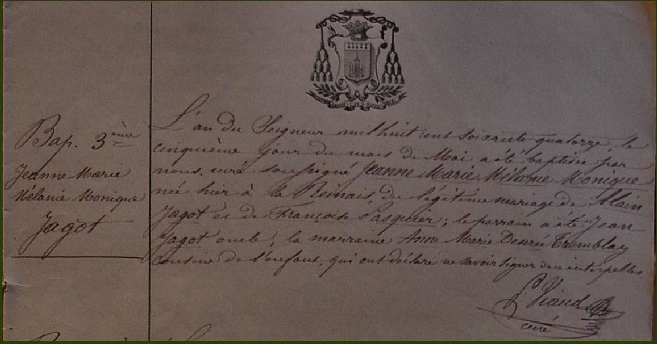 Bap. 3ème
Jeanne Marie
Mélanie Monique
Jagot
L'an du Seigneur mil huit cent soixante-quatorze, le
cinquième jour du mois de Mai, a été baptisée par
nous, curé soussigné Jeanne Marie Mélanie Monique
née hier à la du légitime mariage de Alain
Jagot et de Françoise Pasquier; le parrain a été Jean
Jagot oncle, la marraine Anne Marie Tremblay
cousine de l'enfant, qui ont déclaré ne savoir signer de ce interpellés
Viaud
curé